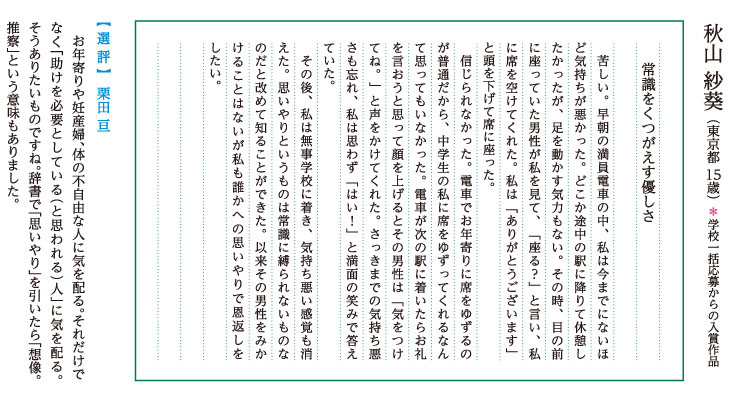 秋山 紗葵（東京都 15歳）＊学校一括応募からの入賞作品
常識をくつがえす優しさ
苦しい。早朝の満員電車の中、私は今までにないほ
ど気持ちが悪かった。どこか途中の駅に降りて休憩し
たかったが、足を動かす気力もない。その時、目の前
に座っていた男性が私を見て、「座る？」と言い、私
に席を空けてくれた。私は「ありがとうございます」
と頭を下げて席に座った。
信じられなかった。電車でお年寄りに席をゆずるの
が普通だから、中学生の私に席をゆずってくれるなん
て思ってもいなかった。電車が次の駅に着いたらお礼
を言おうと思って顔を上げるとその男性は「気をつけ
てね。」と声をかけてくれた。さっきまでの気持ち悪
さも忘れ、私は思わず「はい！」と満面の笑みで答え
ていた。
その後、私は無事学校に着き、気持ち悪い感覚も消
えた。思いやりというものは常識に縛られないものな
のだと改めて知ることができた。以来その男性をみか
けることはないが私も誰かへの思いやりで恩返しを
したい。
【選評】 栗田 亘
お年寄りや妊産婦、体の不自由な人に気を配る。それだけで
なく「助けを必要としている（と思われる）人」に気を配る。
そうありたいものですね。辞書で「思いやり」を引いたら「想像。
推察」という意味もありました。